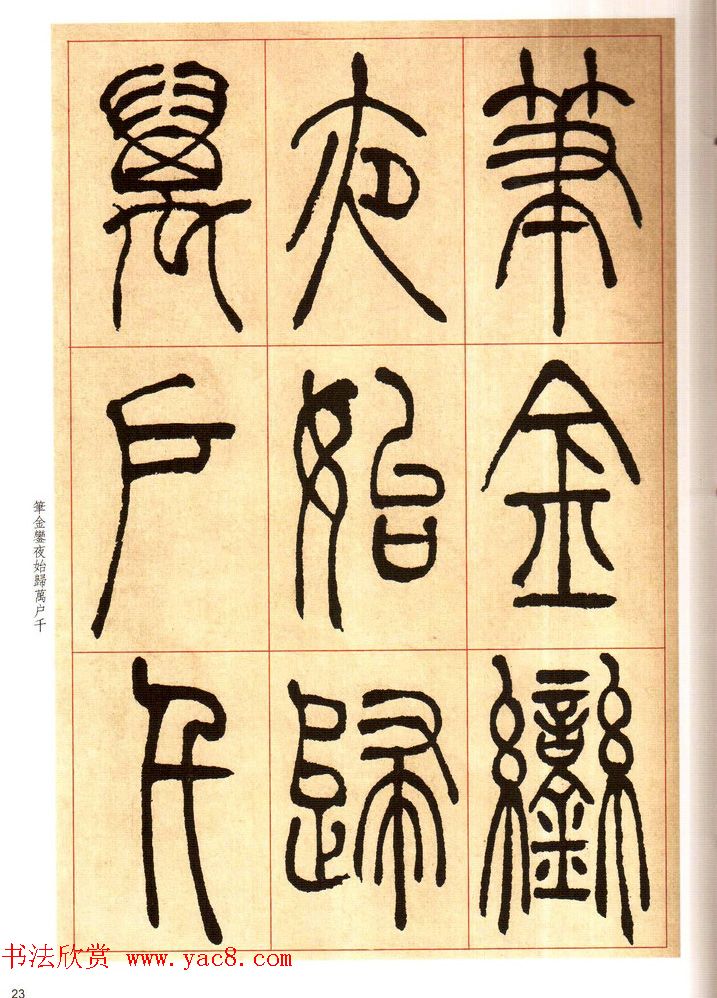 筆金鑾
夜始歸
萬户千
筆金鑾夜始歸萬户千
书法欣赏 www.yac8.com
23